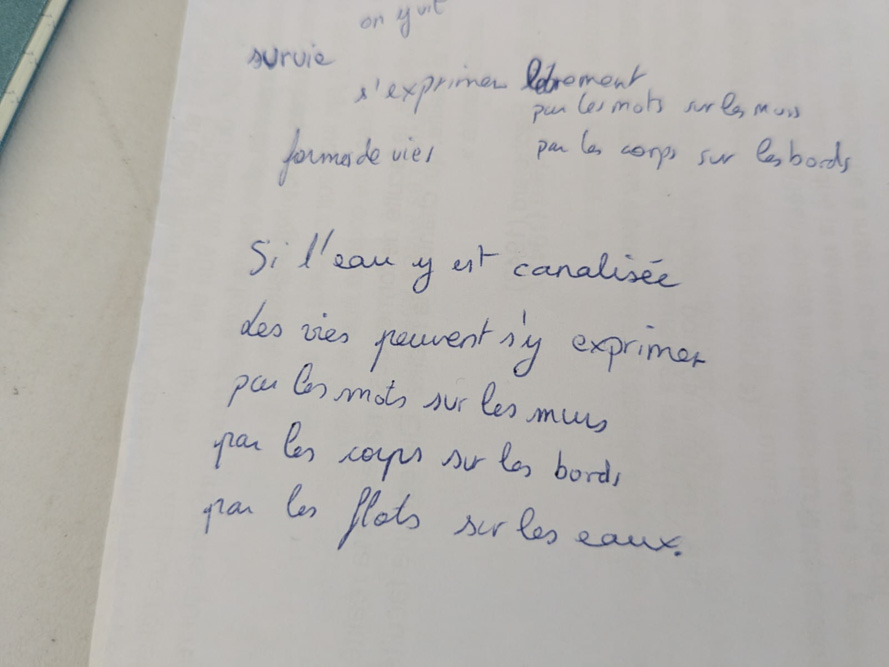 on y vit
survie
s'exprimer librement
par les mots sur les murs
formes de vies
par les corps sur les bords
Si l'eau y est canalisée
des vies peuvent s'y exprimer
par les mots sur les murs
par les corps sur les bords
par les flots sur les eaux.